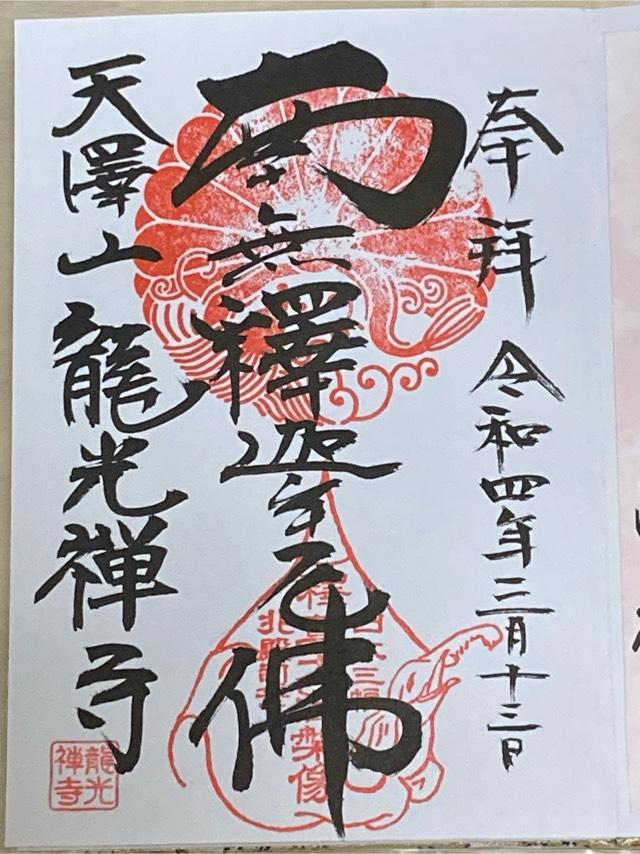 奉拝 令和四年三月十三日
南無釋迦牟尼佛
天澤山龍光禅寺
龍光
禅寺